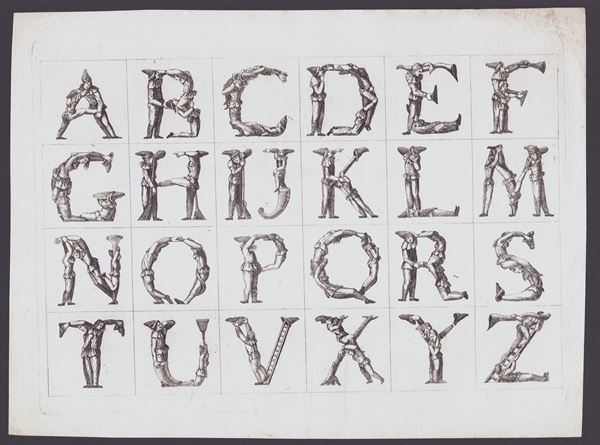 A B C D E F
G H I J K L M
N O P Q R S
T U V X Y Z